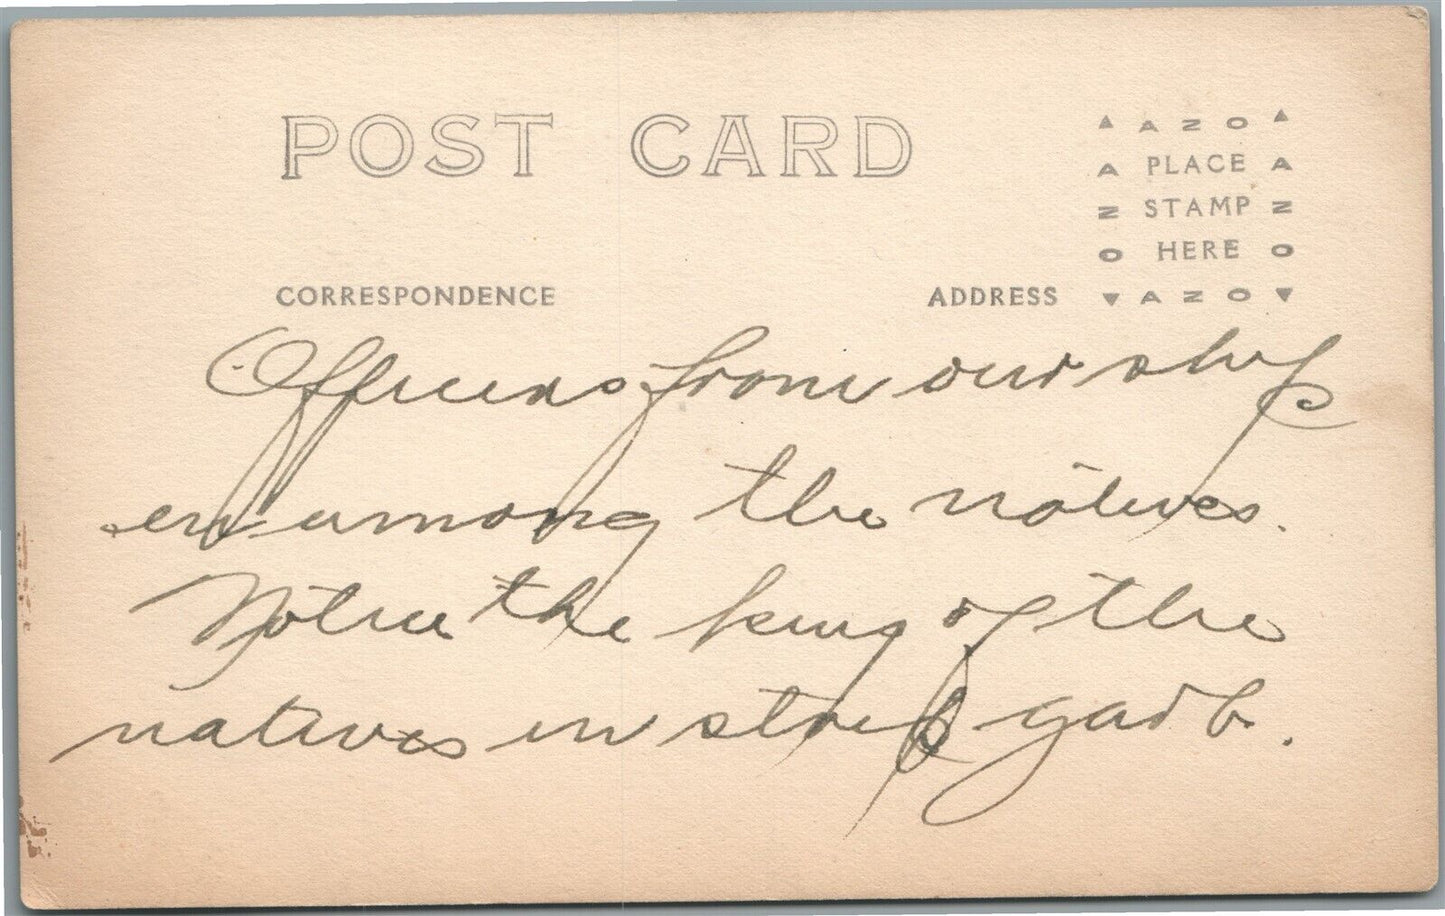 POST CARD
AZO
A PLACE A
N STAMP N
O HERE O
AZO
CORRESPONDENCE
ADDRESS
Officers from our ship
en among the natives.
Notice the king of the
natives in strip garb.